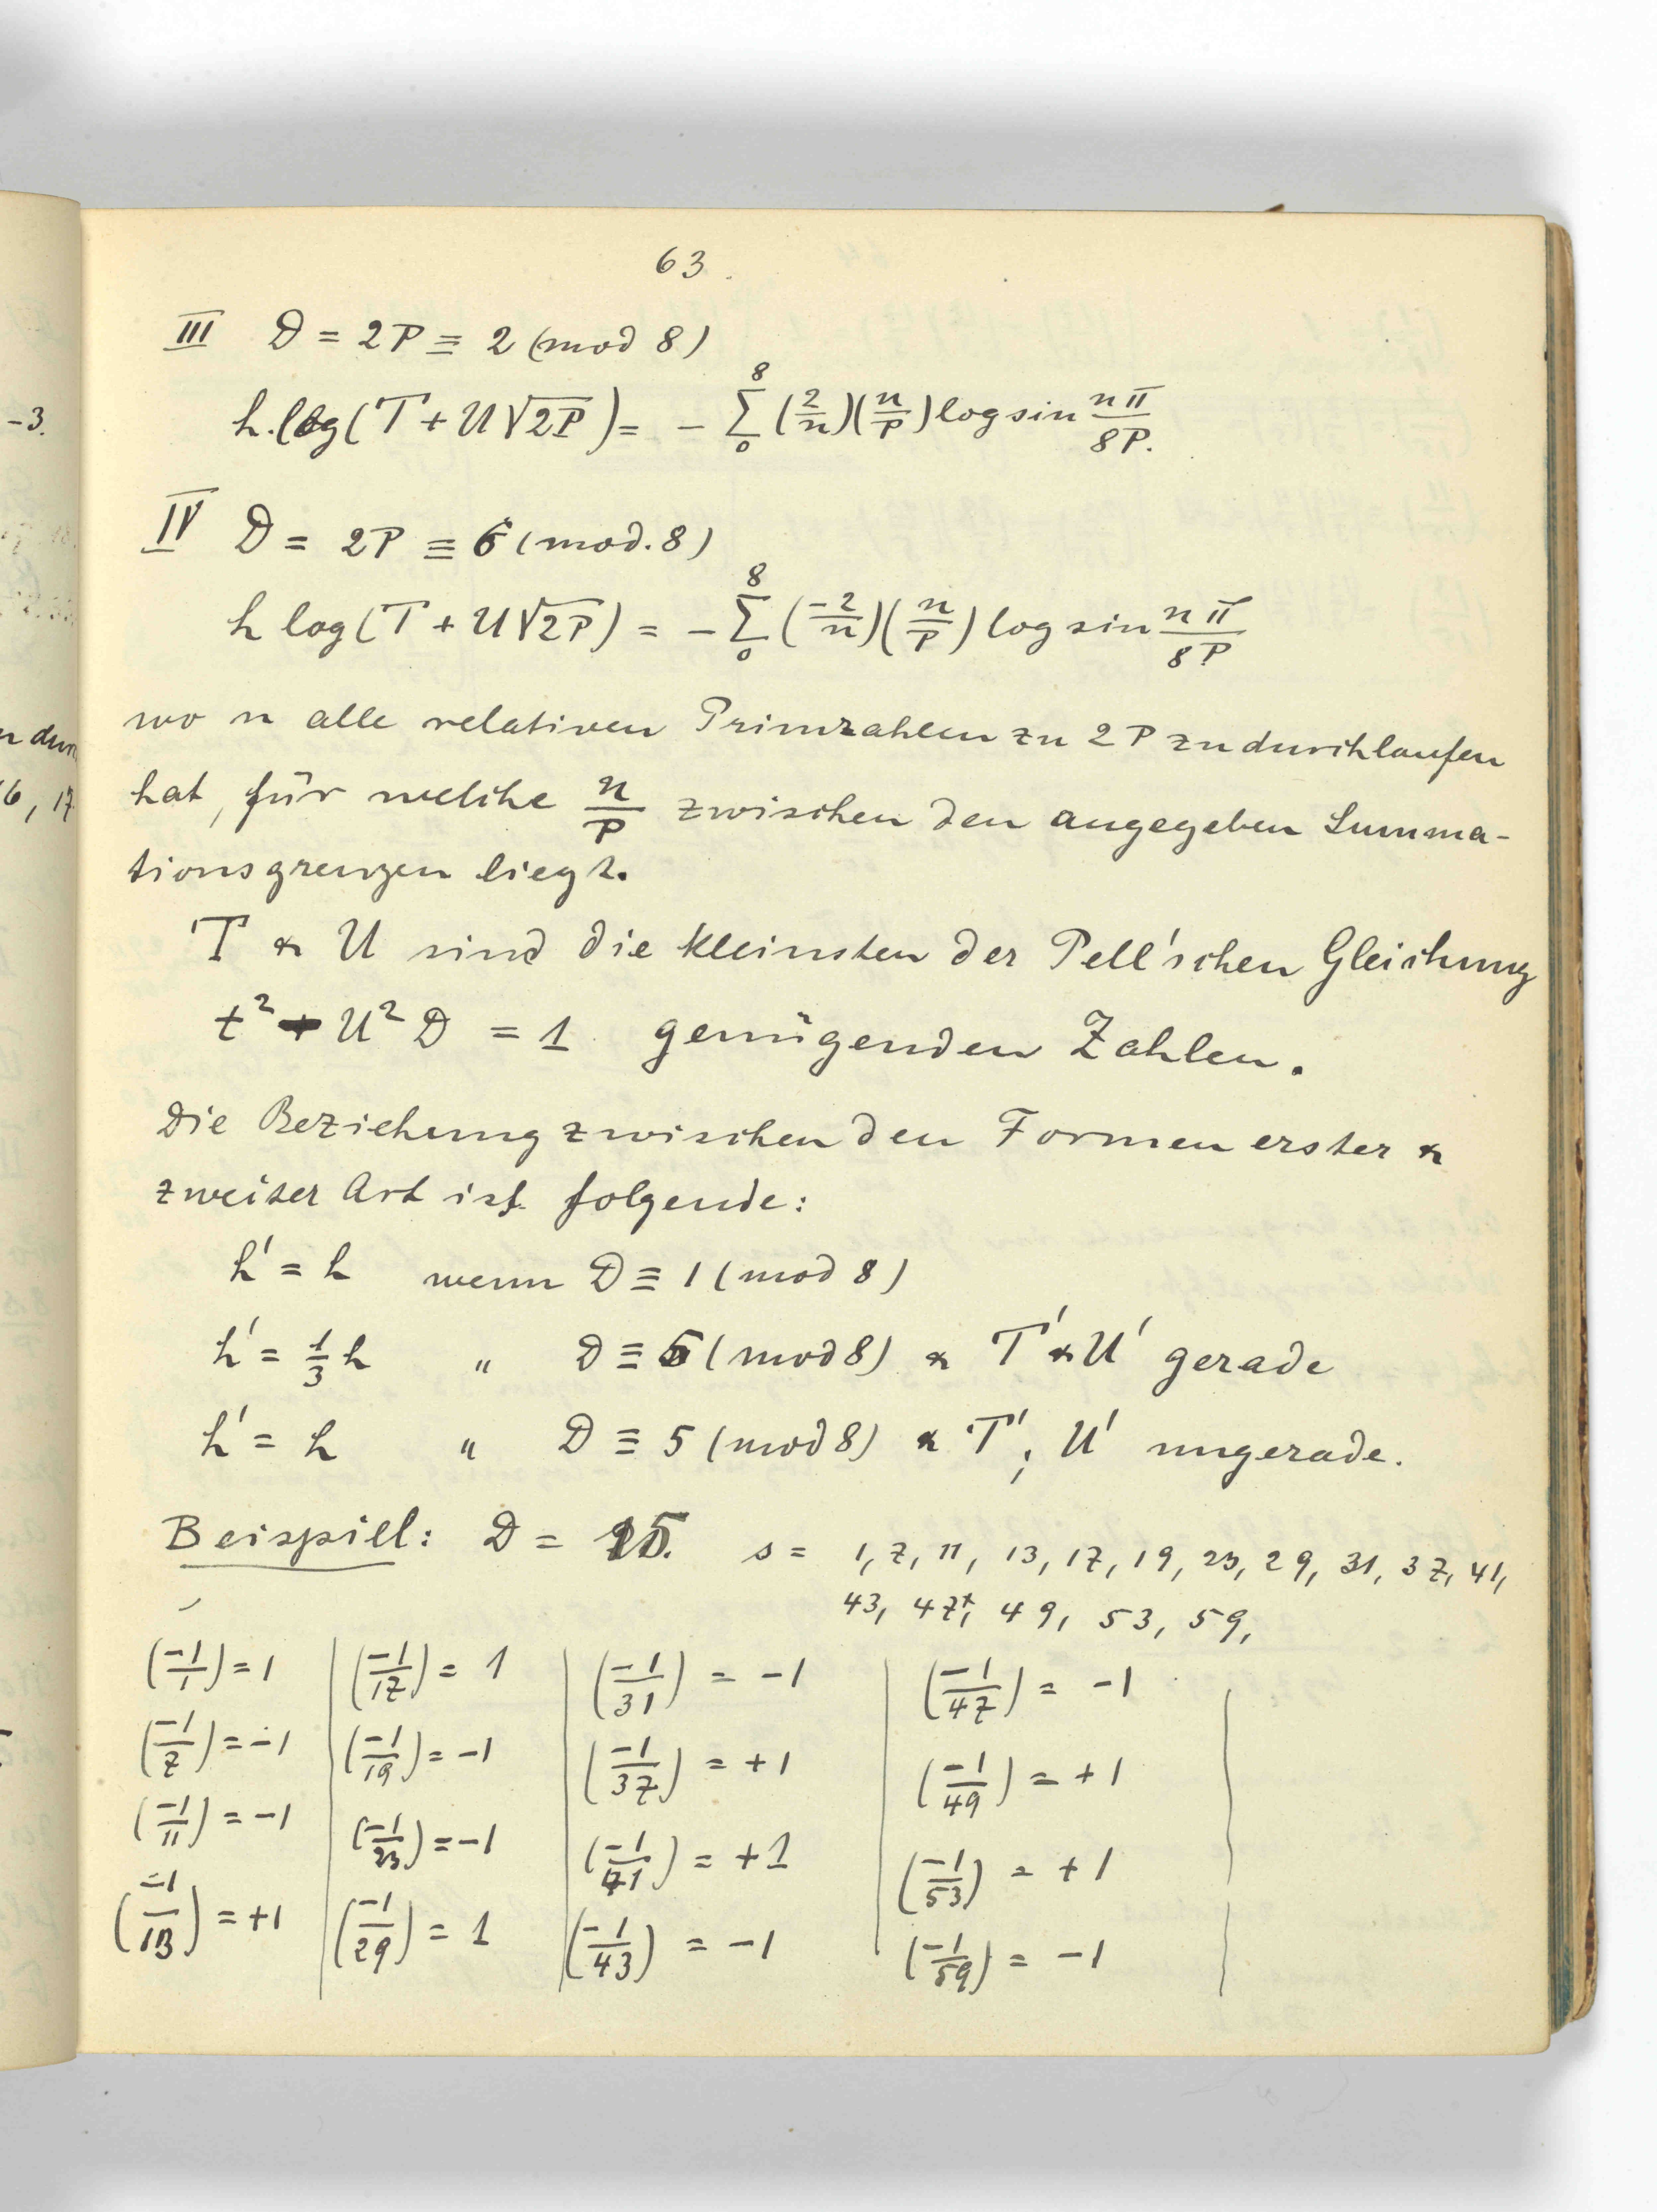 63.
III D = 2P ≡ 2 (mod 8)
h. log (T + U √2P) = - 8 Σ 0 (2/n)(n/P) log sin nπ/8P.
IV D = 2P ≡ 6 (mod. 8)
h log (T + U √2P) = - 8 Σ 0 (-2/n)(n/P) log sin nπ/8P
wo n alle relativen Primzahlen zu 2P zu durchlaufen
hat, für welche n/P zwischen den angegeben Summa-
tionsgrenzen liegt.
T & U sind die kleinsten der Pell'schen Gleichung
t² - U² D = 1 genügenden Zahlen.
Die Beziehung zwischen den Formen erster &
zweiter Art ist folgende:
h' = h wenn D ≡ 1 (mod 8)
h' = 1/3 h " D ≡ 5 (mod 8) & T' & U' gerade
h' = h " D ≡ 5 (mod 8) & T', U' ungerade.
Beispiel: D = 15. s = 1, 7, 11, 13, 17, 19, 23, 29, 31, 37, 41,
43, 47, 49, 53, 59,
(-1/1) = 1 (-1/17) = 1 (-1/31) = -1 (-1/47) = -1
(-1/7) = -1 (-1/19) = -1 (-1/37) = +1 (-1/49) = +1
(-1/11) = -1 (-1/23) = -1 (-1/41) = +1 (-1/53) = +1
(-1/13) = +1 (-1/29) = 1 (-1/43) = -1 (-1/59) = -1
-3.
6, 17